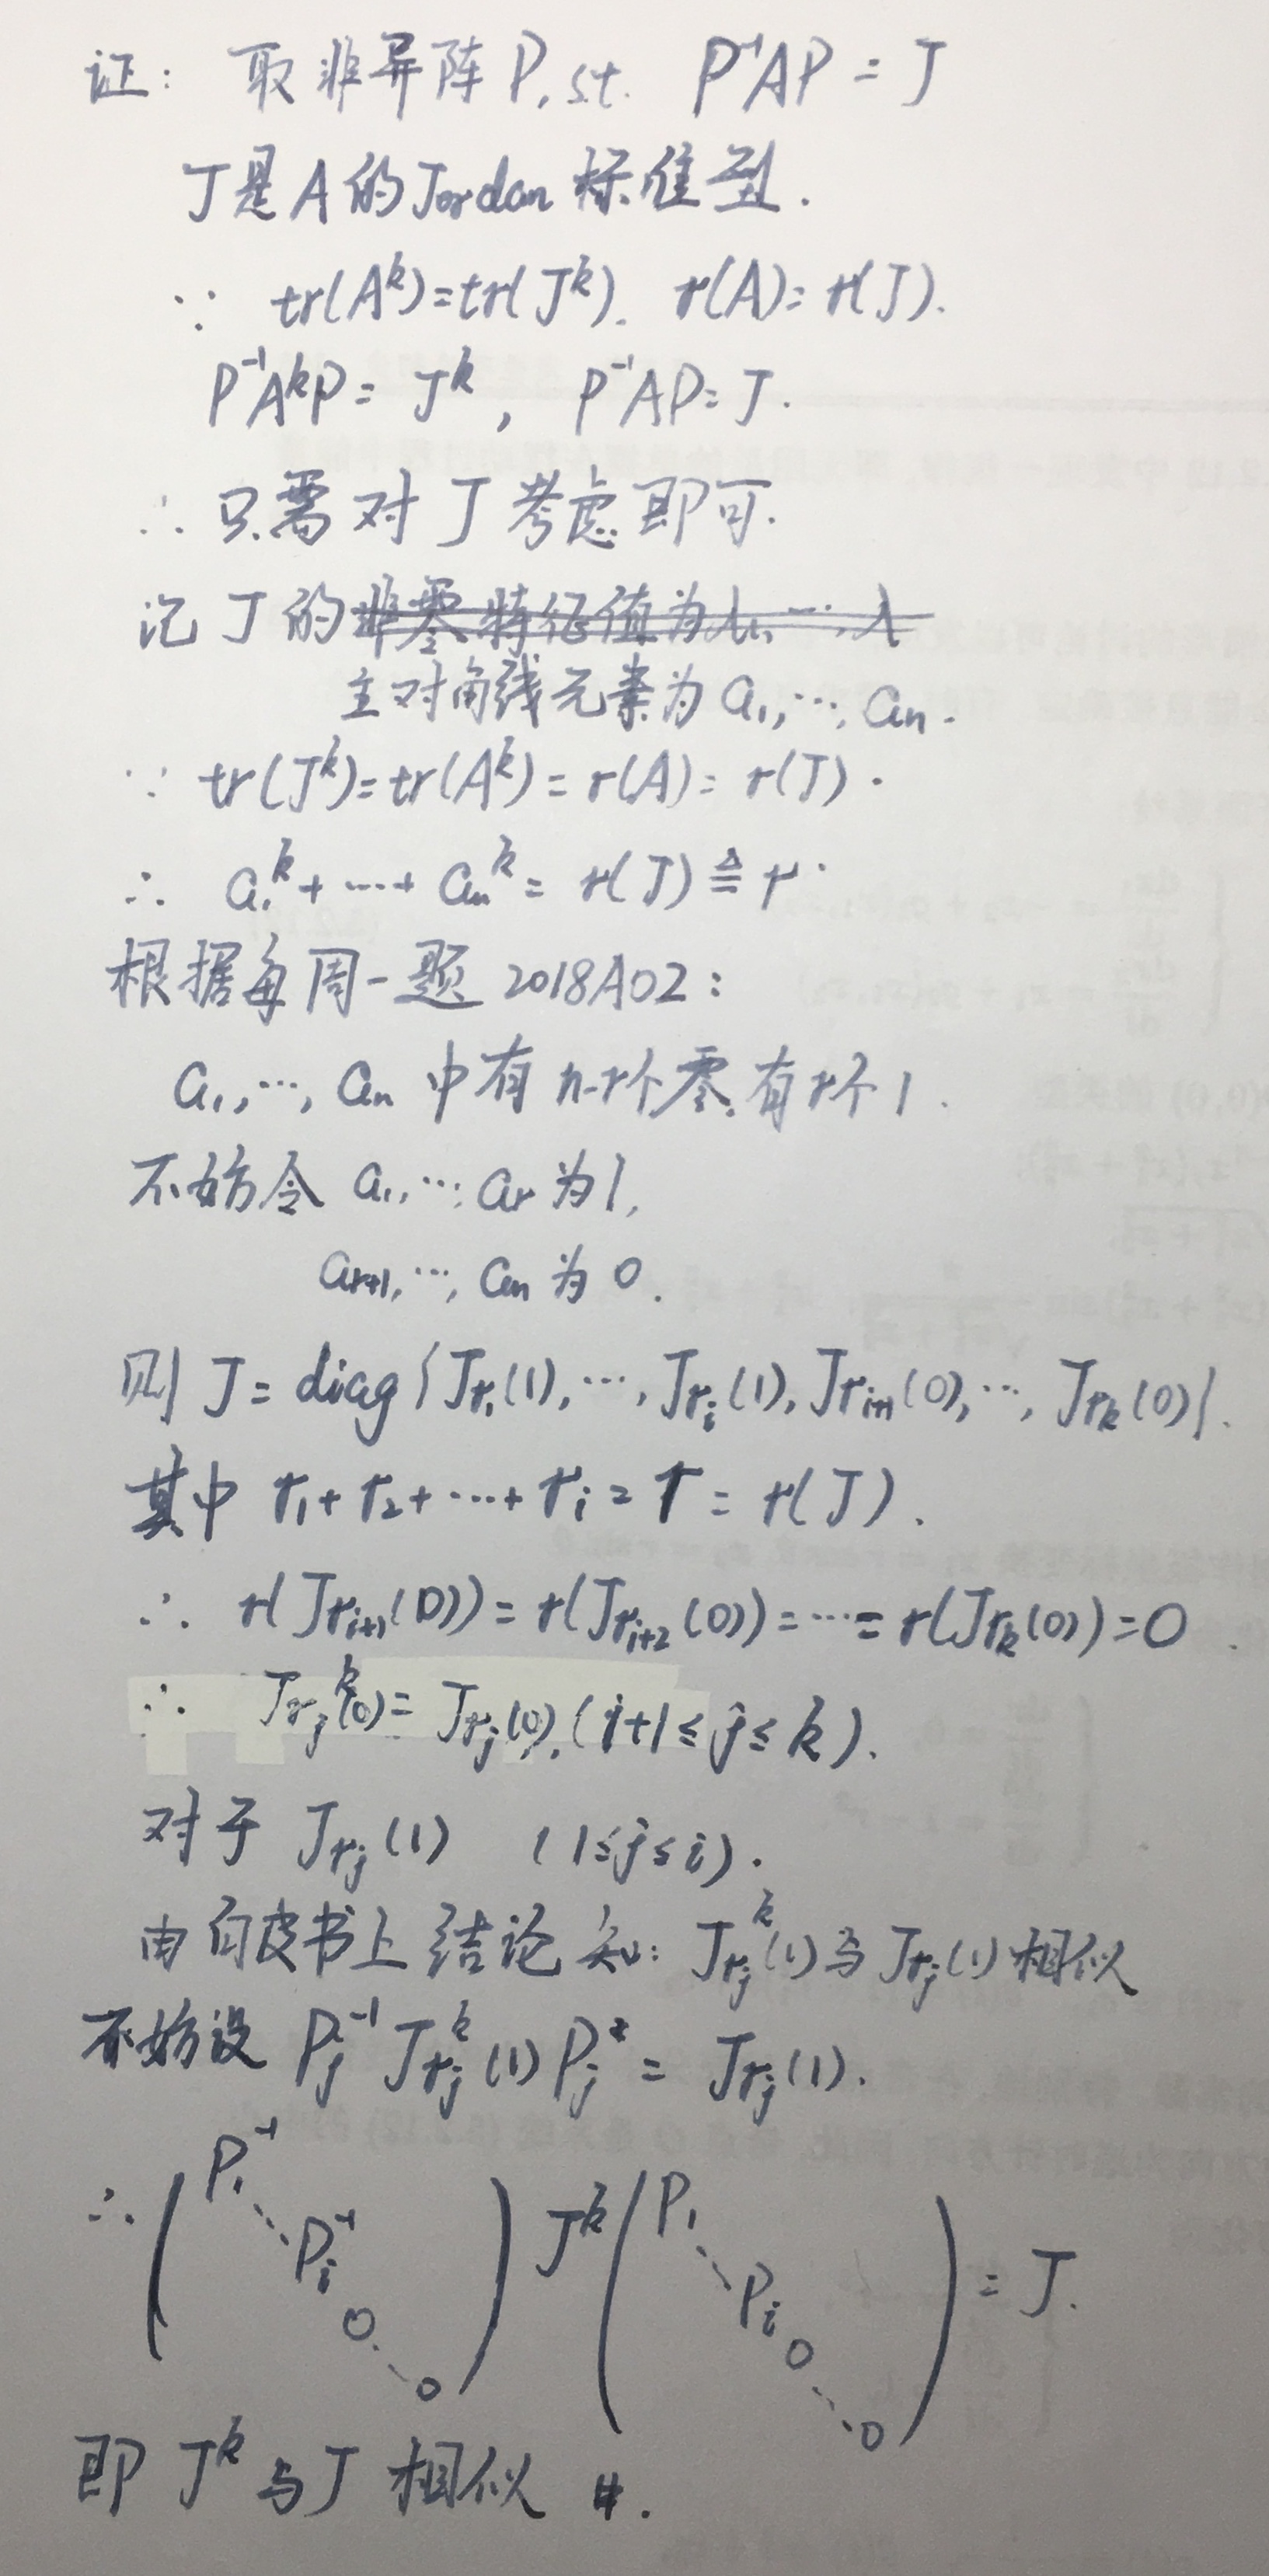 证: 取非异阵P, st. P⁻¹AP = J
J是A的Jordan标准型.
∵ tr(Aᵏ)=tr(Jᵏ). r(A)=r(J).
P⁻¹AᵏP = Jᵏ, P⁻¹AP=J.
∴ 只需对J考虑即可.
记J的非零特征值为λ₁,…,λ
主对角线元素为a₁,…,aₙ.
∵ tr(Jᵏ)=tr(Aᵏ)=r(A)=r(J).
∴ a₁ᵏ+…+aₙᵏ= r(J)≜r.
根据每周一题2018A02:
a₁,…,aₙ中有n-r个零,有r个1.
不妨令a₁,…,aᵣ为1,
aᵣ₊₁,…,aₙ为0.
则J=diag{J_{r₁}(1),…,J_{r_i}(1),J_{r_{i+1}}(0),…,J_{r_k}(0)}.
其中r₁+r₂+…+r_i=r=r(J).
∴ r(J_{r_{i+1}}(0))=r(J_{r_{i+2}}(0))=…=r(J_{r_k}(0))=0.
∴ J_{r_j}ᵏ(0)=J_{r_j}(0).(i+1≤j≤k).
对于J_{r_j}(1) (1≤j≤i).
由白皮书上结论知: J_{r_j}ᵏ(1)与J_{r_j}(1)相似
不妨设P_j⁻¹J_{r_j}ᵏ(1)P_j = J_{r_j}(1).
∴ (P₁⁻¹ ⋱ P_i⁻¹ 0 ⋱ 0) Jᵏ (P₁ ⋱ P_i 0 ⋱ 0) = J.
即Jᵏ与J相似 #.